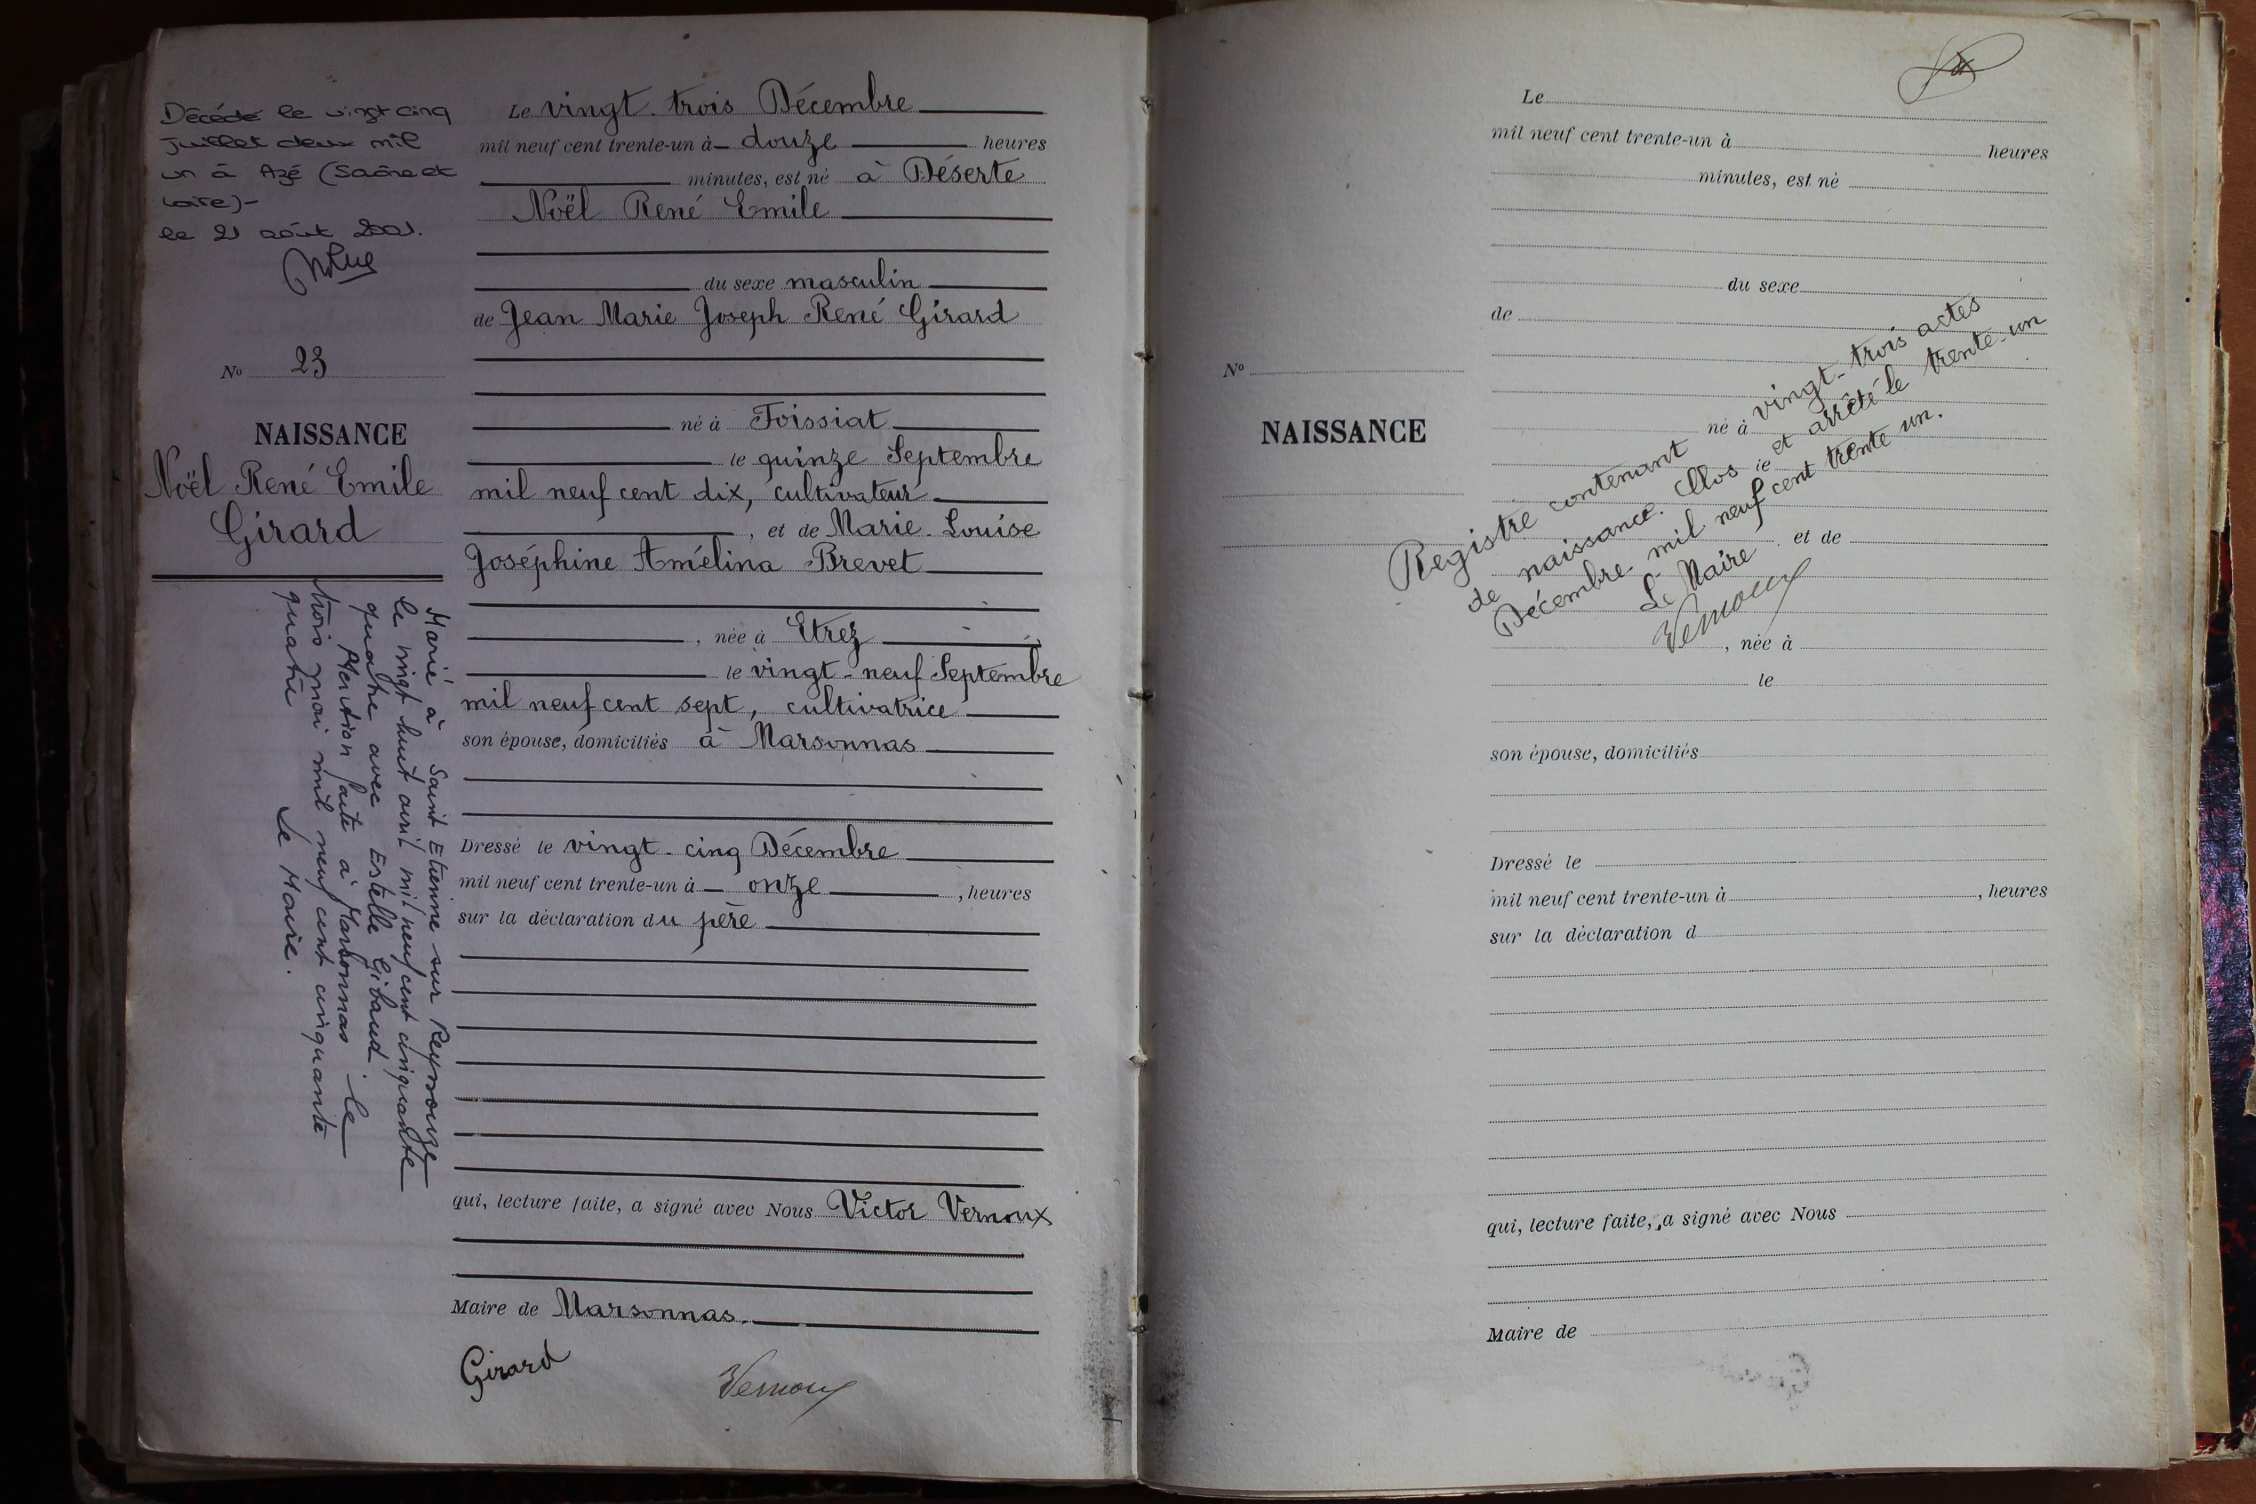 Décédé le vingt cinq
juillet deux mil
un à Azé (Saône et
Loire)-
le 21 août 2001.
No 23
NAISSANCE
Noël René Emile
Girard
Marié à Saint Etienne sur Reyssouze
le vingt huit avril mil neuf cent cinquante
quatre avec Estelle Gibaud.
Mention faite à Marsonnas le
trois mai mil neuf cent cinquante
quatre
Le Maire.
Le vingt-trois Décembre
mil neuf cent trente-un à douze heures
minutes, est né à Déserte
Noël René Emile
du sexe masculin
de Jean Marie Joseph René Girard
né à Foissiat
le quinze Septembre
mil neuf cent dix, cultivateur
, et de Marie-Louise
Joséphine Amélina Brevet
, née à Etrez
le vingt-neuf Septembre
mil neuf cent sept, cultivatrice
son épouse, domiciliés à Marsonnas
Dressé le vingt-cinq Décembre
mil neuf cent trente-un à onze , heures
sur la déclaration du père
qui, lecture faite, a signé avec Nous Victor Vernoux
Maire de Marsonnas.
Girard
Vernoux
No
NAISSANCE
Le
mil neuf cent trente-un à heures
minutes, est né
du sexe
de
né à
le
et de
, née à
le
son épouse, domiciliés
Dressé le
mil neuf cent trente-un à , heures
sur la déclaration d
qui, lecture faite, a signé avec Nous
Maire de
Registre contenant vingt-trois actes
de naissance. Clos et arrêté le trente-un
Décembre mil neuf cent trente un.
Le Maire
Vernoux